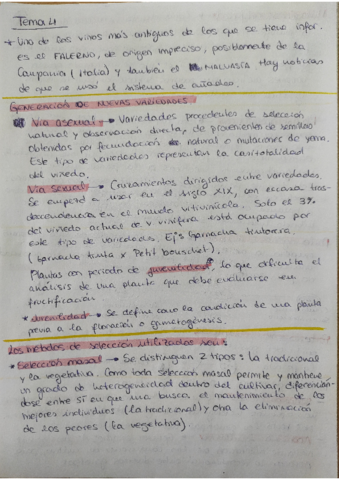 Tema 4
* Uno de los vinos más antiguos de los que se tiene infor.
es el FALERNO, de origen impreciso, posiblemente de la
Campania (Italia) y también el MALVASÍA. Hay noticias
de que se usó el sistema de añadas.
GENERACIÓN DE NUEVAS VARIEDADES.
Vía asexual → Variedades procedentes de selección
natural y observación directa, de provenientes de semillas
obtenidas por fecundación natural o mutaciones de yema.
Este tipo de variedades representan la casi totalidad
del viñedo.
Vía sexual → Cruzamientos dirigidos entre variedades.
Se empezó a usar en el siglo XIX, con escasa tras-
decendencia en el mundo vitivinícola. Solo el 3%
del viñedo actual de v vinifera está ocupado por
este tipo de variedades. Ej's Garnacha tintorera
(garnacha tinta x Petit bouschet).
Plantas con periodo de juvenilidad, lo que dificulta el
análisis de una planta que debe evaluarse en
fructificación.
* Juvenilidad → Se define como la condición de una planta
previa a la floración o gametogénesis.
Los métodos de selección utilizados son:
* Selección masal → Se distinguen 2 tipos: la tradicional
y la vegetativa. Como toda selección masal permite y mantiene
un grado de heterogeneidad dentro del cultivar, diferencián-
dose entre sí en que una busca el mantenimiento de los
mejores individuos (la tradicional) y otra la eliminación
de los peores (la vegetativa).